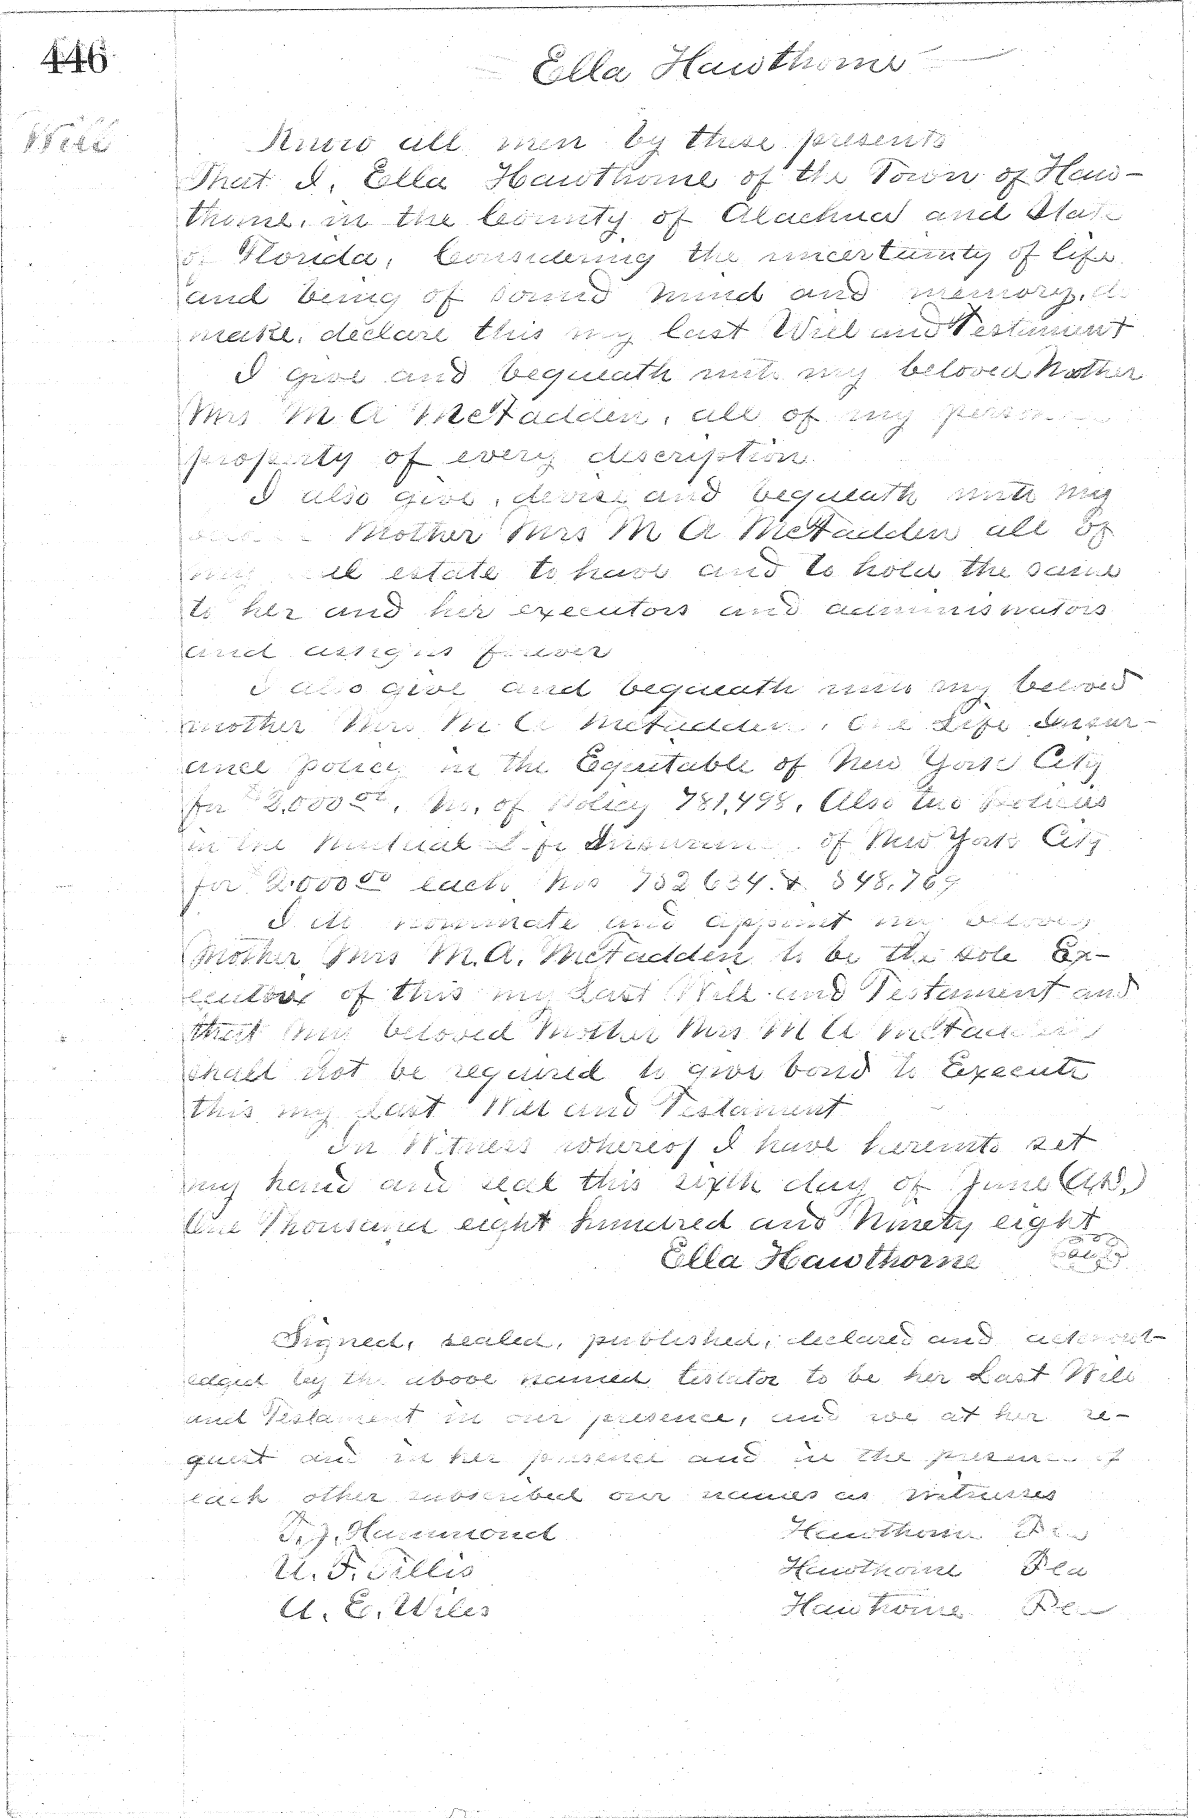 446
Ella Hawthorne
Will
Know all men by these presents
That I, Ella Hawthorne of the Town of Haw-
thorne, in the County of Alachua and State
of Florida, Considering the uncertainty of life
and being of sound mind and memory, do
make, declare this my last Will and Testament
I give and bequeath unto my beloved Mother
Mrs M A McFadden, all of my personal
property of every description
I also give, devise and bequeath unto my
Mother Mrs M A McFadden all of
my real estate to have and to hold the same
to her and her executors and administrators
and assigns forever
I also give and bequeath unto my beloved
mother Mrs M A McFadden, One Life Insur-
ance policy in the Equitable of New York City
for $2,000 00, No. of Policy 781,498, Also two Policies
in the Mutual Life Insurance of New York City
for $2000 00 each Nos 752634 & 848,769
I do nominate and appoint my beloved
Mother Mrs M.A. McFadden to be the sole Ex-
ecutrix of this my Last Will and Testament and
that my beloved Mother Mrs M A McFadden
shall not be required to give bond to Execute
this my Last Will and Testament
In Witness whereof I have hereunto set
my hand and seal this sixth day of June (A.D.)
One Thousand eight hundred and Ninety eight
Ella Hawthorne Seal
Signed, sealed, published, declared and acknowl-
edged by the above named testator to be her Last Will
and Testament in our presence, and we at her re-
quest and in her presence and in the presence of
each other subscribed our names as witnesses
T. J. Hammond Hawthorne Fla
U. F. Tillis Hawthorne Fla
A. E. Wiles Hawthorne Fla